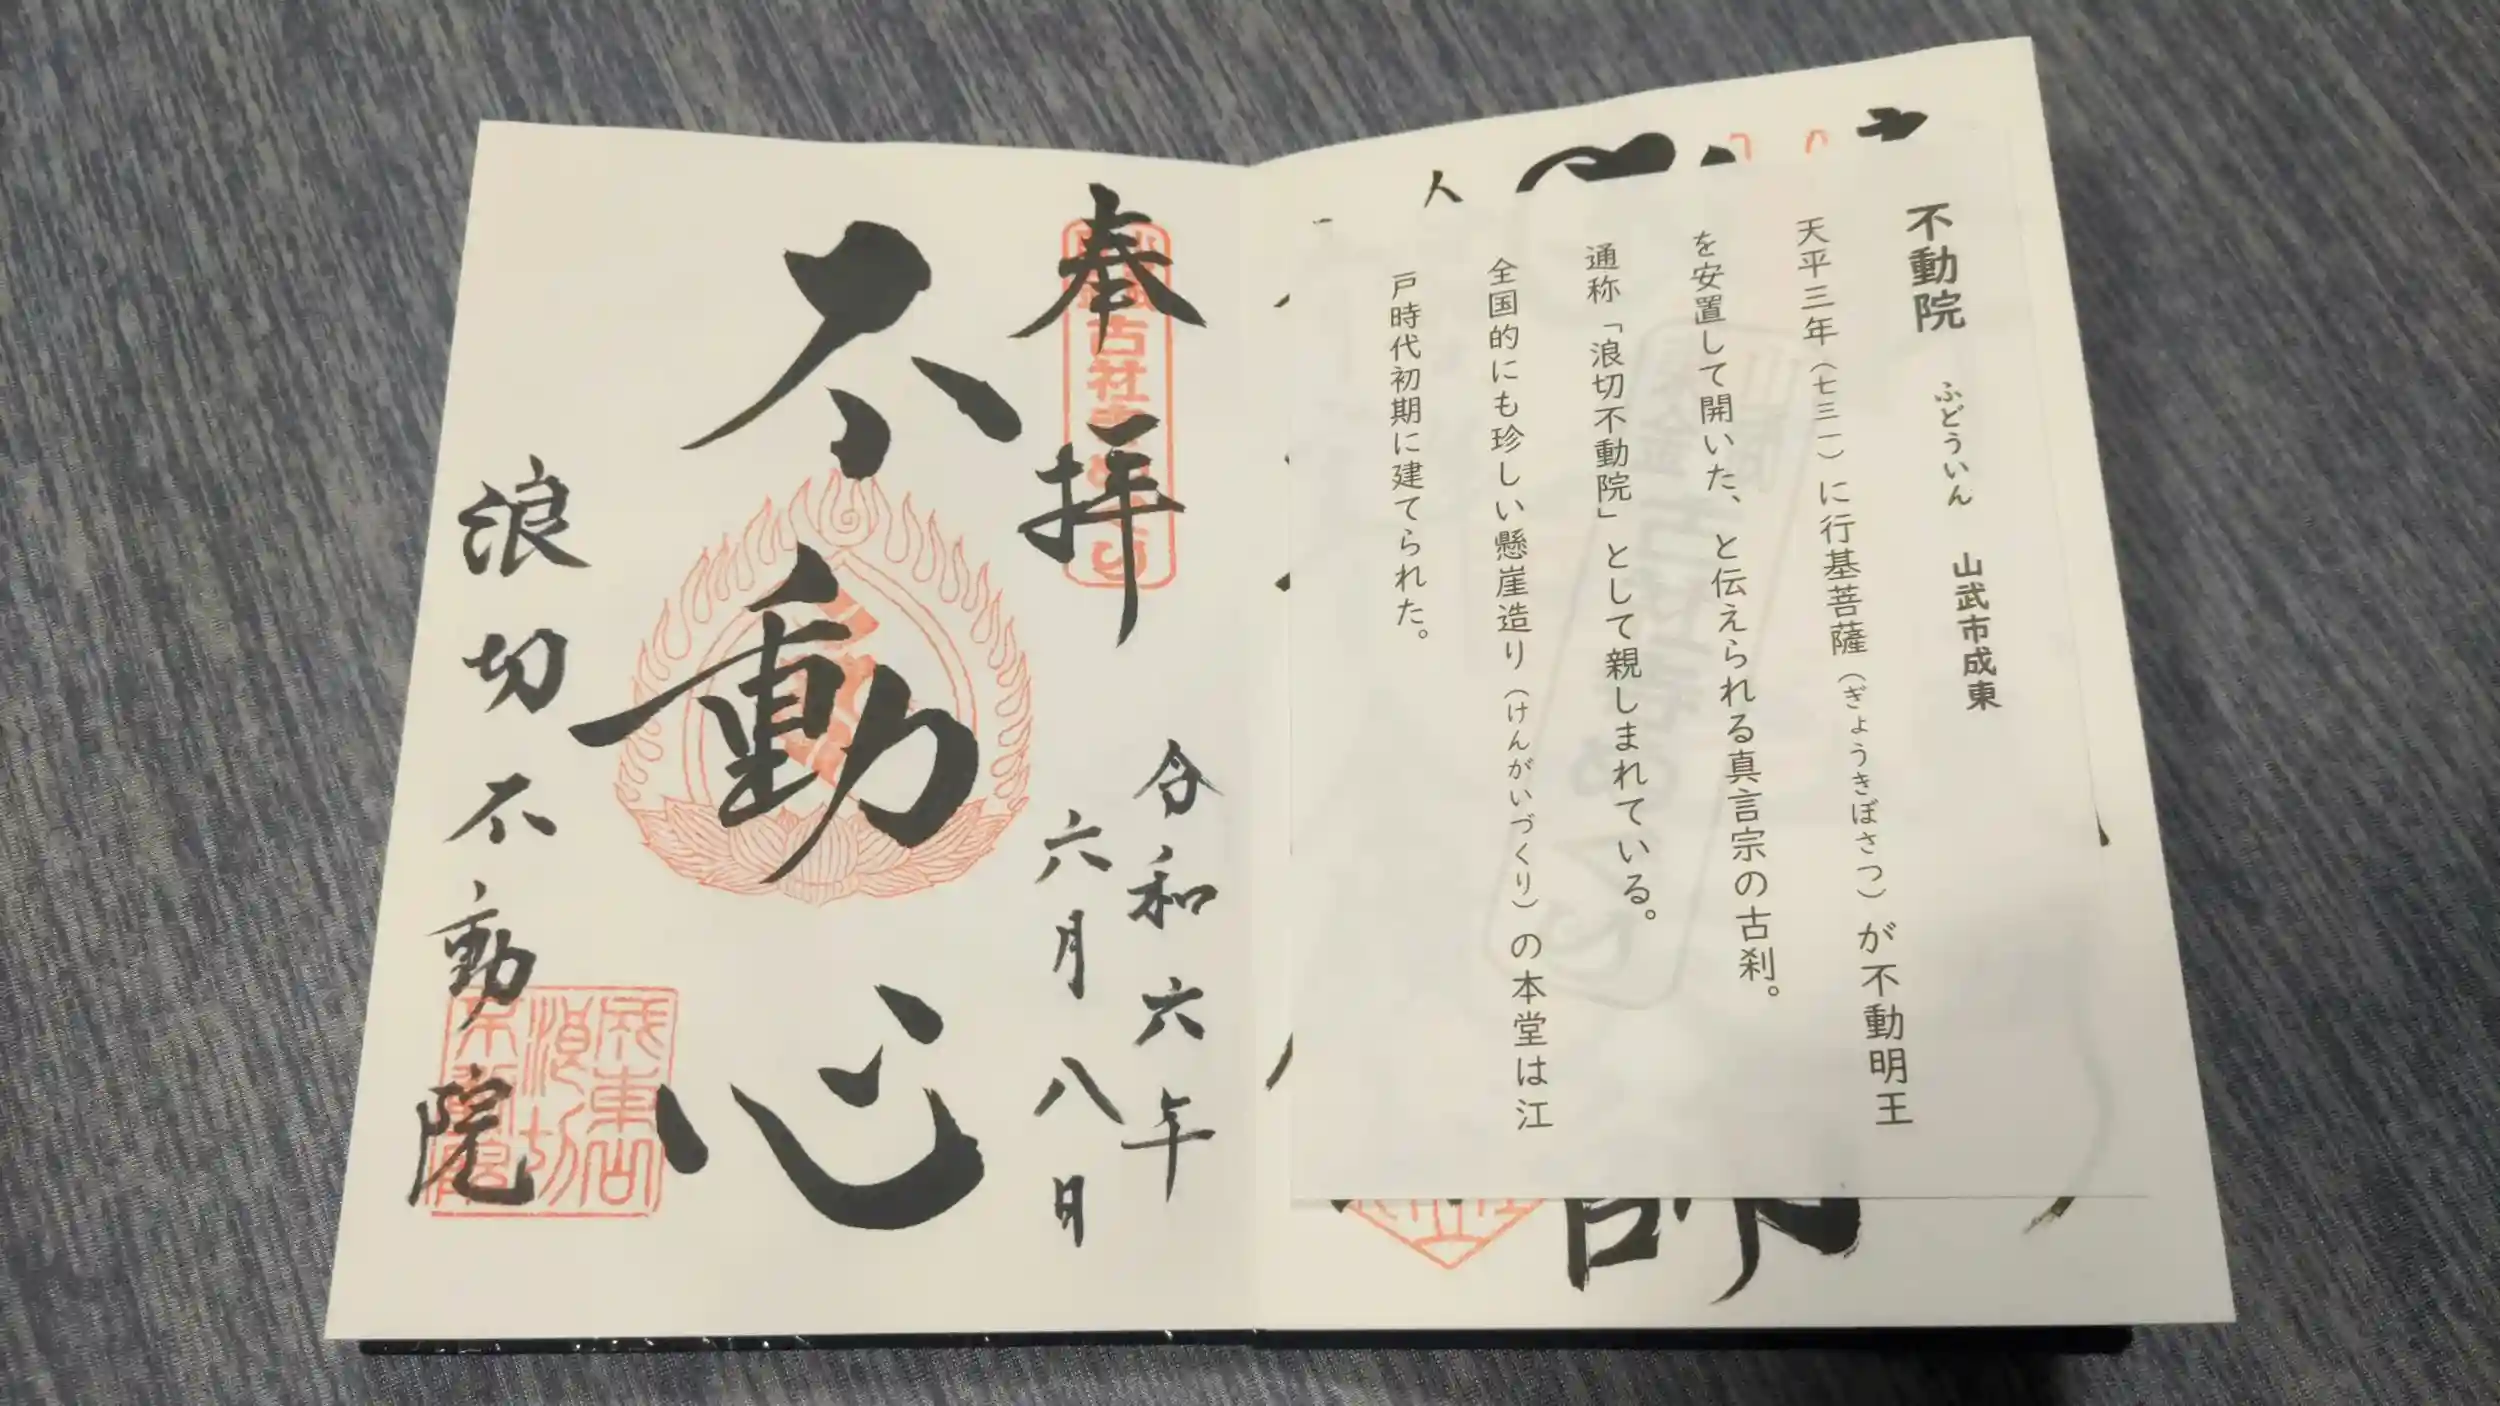 不動院 ふどういん 山武市成東
天平三年(七三一)に行基菩薩(ぎょうきぼさつ)が不動明王
を安置して開いた、と伝えられる真言宗の古刹。
通称「浪切不動院」として親しまれている。
全国的にも珍しい懸崖造り(けんがいづくり)の本堂は江
戸時代初期に建てられた。
奉拝
令和六年
六月八日
不動心
浪切不動院
成東山
浪切
不動院